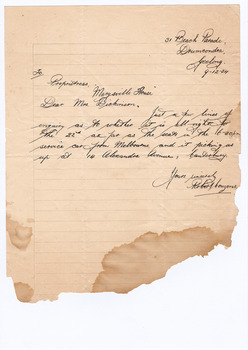 31 Beach Parade,
Drumcondra,
Geelong.
9-12-44
To
Proprietress,
"Marysville House"
Dear Mrs Dickinson,
Just a few lines of
enquiry as to whether it is all right for
the 22nd as far as the seats in the
service car from Melbourne and it picking us
up at 14 Alexandra Avenue, Canterbury.
Yours sincerely